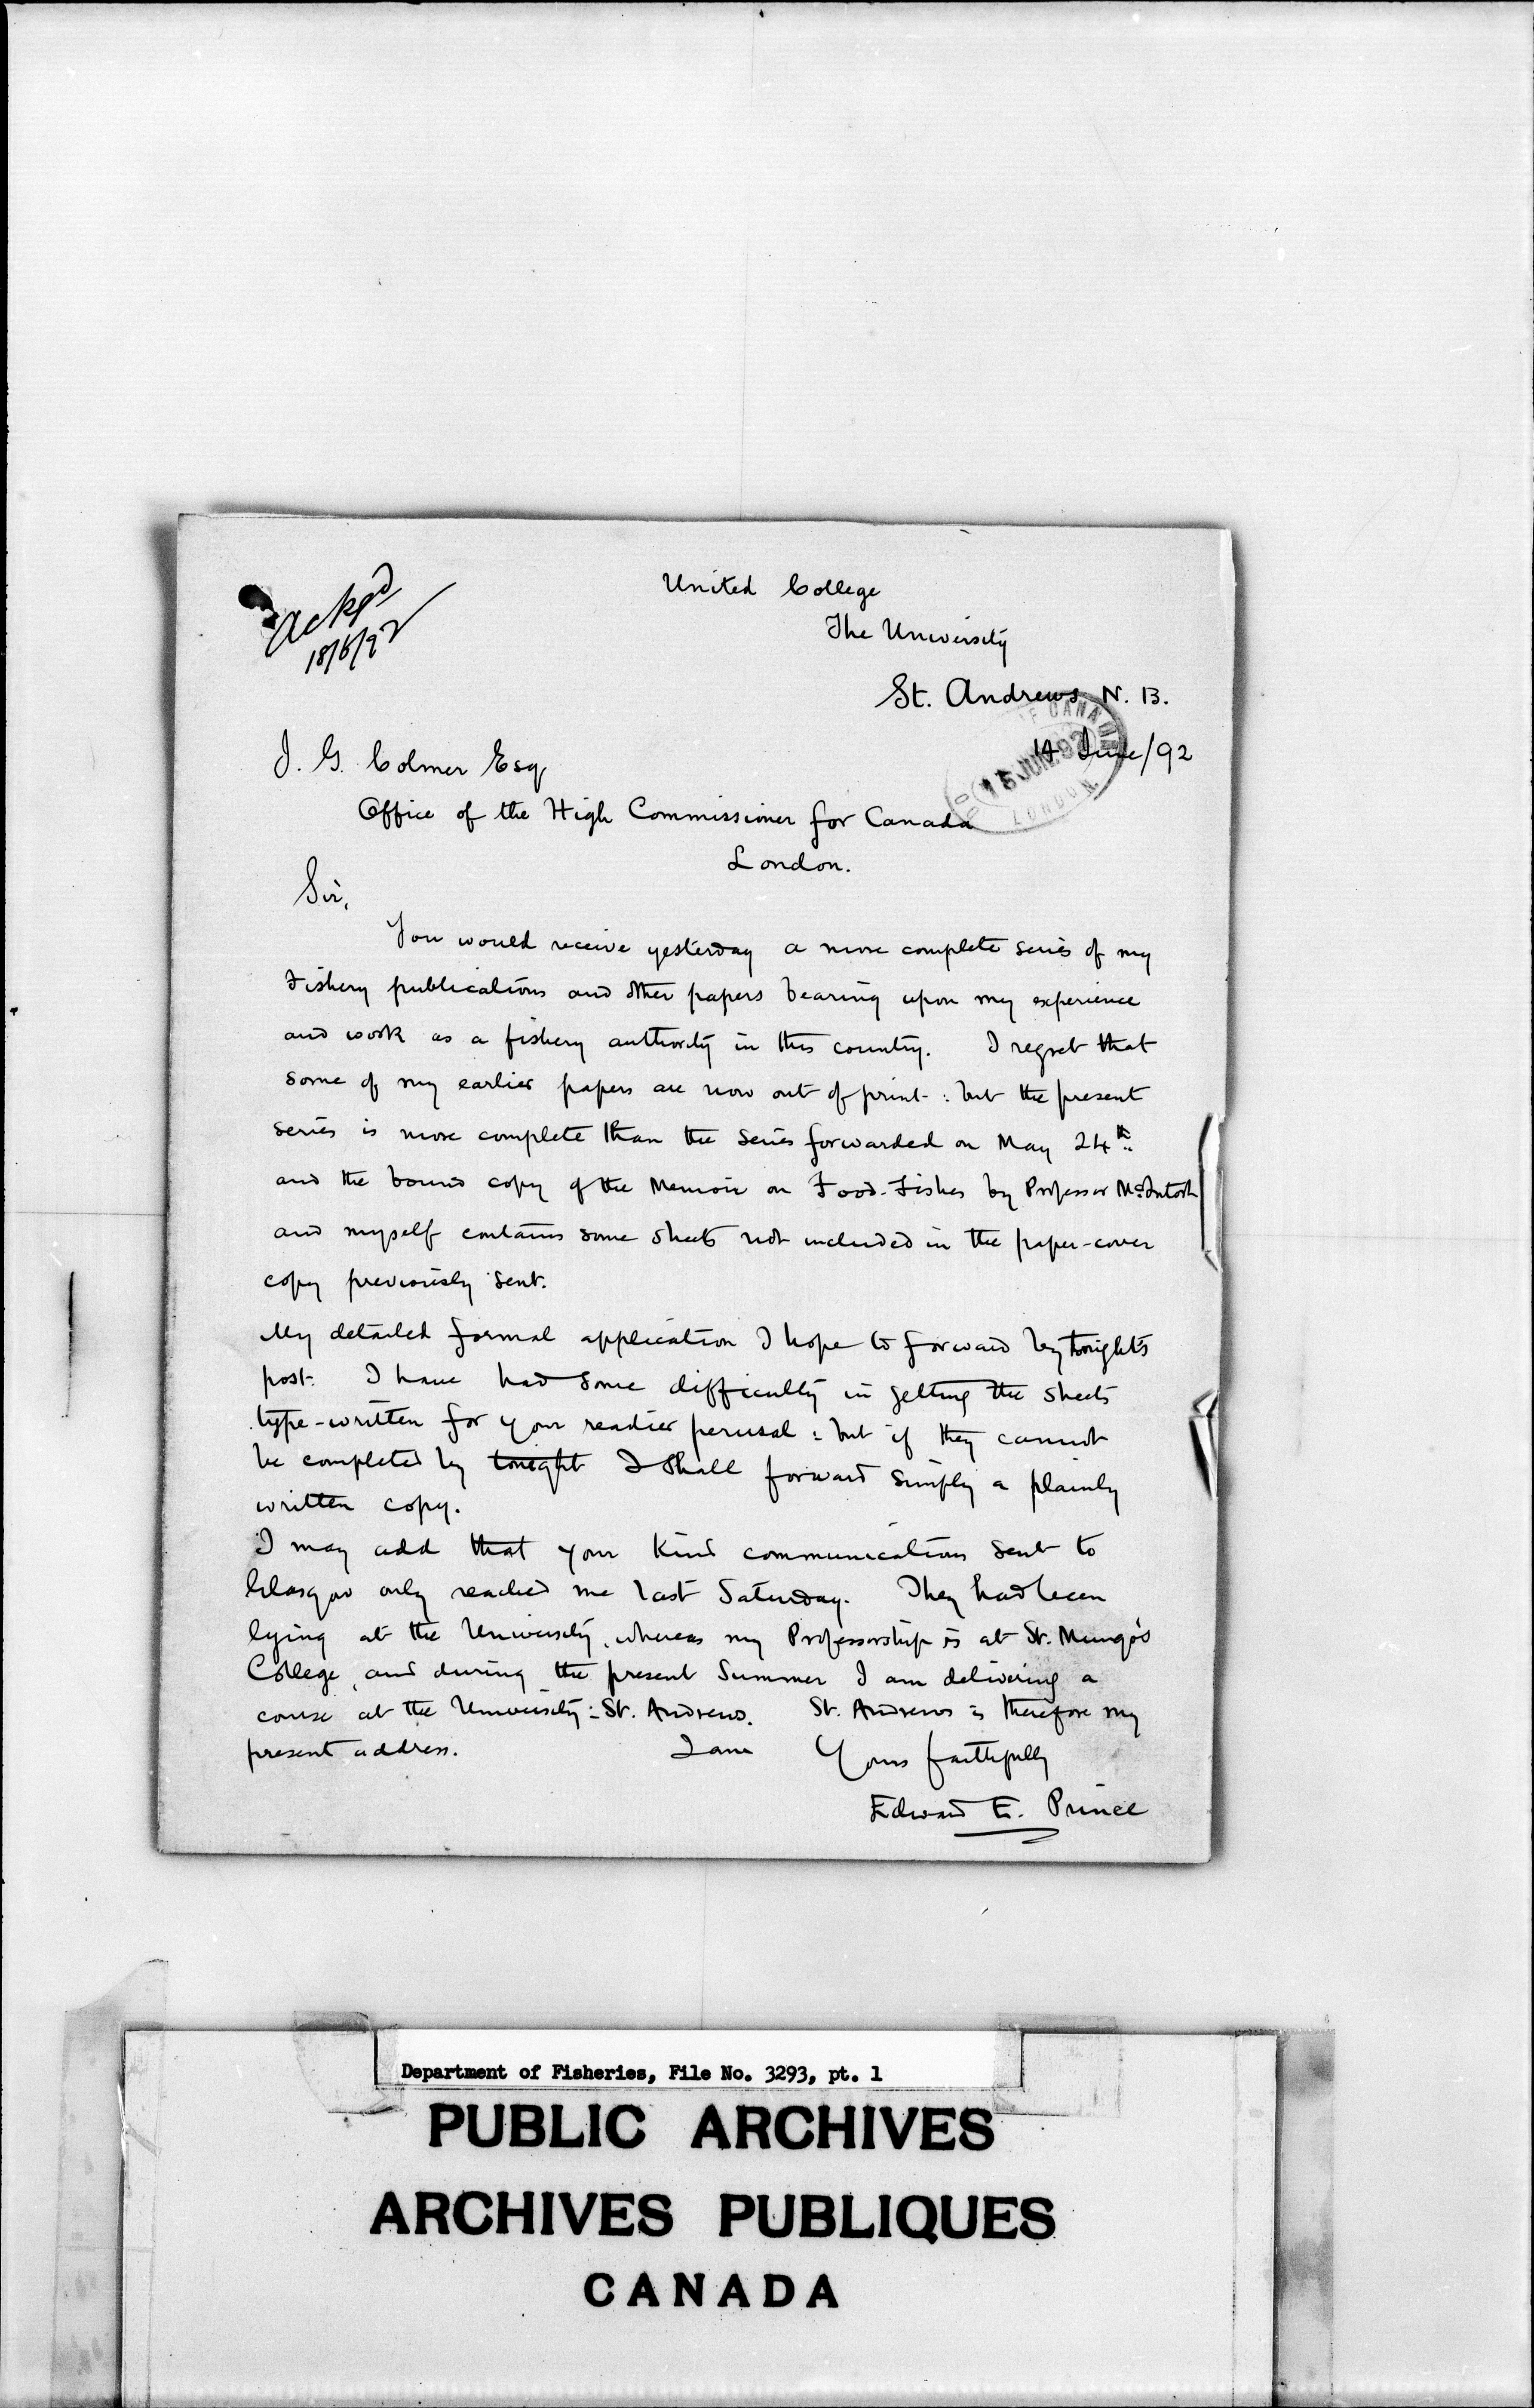 Ackgd
18/6/92
United College
The University
St. Andrews, N. B.
14 June/92
OF CANADA
15 JUN. 92
LONDON
J. G. Colmer Esq
Office of the High Commissioner for Canada
London.
Sir,
You would receive yesterday a more complete series of my
Fishery publications and other papers bearing upon my experience
and work as a fishery authority in this country. I regret that
some of my earlier papers are now out of print : but the present
series is more complete than the series forwarded on May 24th
and the bound copy of the Memoir on Food-Fishes by Professor McIntosh
and myself contains some sheets not included in the paper-cover
copy previously sent.
My detailed formal application I hope to forward by tonight's
post. I have had some difficulty in getting the sheets
type-written for your readier perusal : but if they cannot
be completed by tonight I shall forward simply a plainly
written copy.
I may add that your kind communications sent to
Glasgow only reached me last Saturday. They had been
lying at the University, whereas my Professorship is at St. Mungo's
College, and during the present Summer I am delivering a
course at the University : St. Andrews. St. Andrews is therefore my
present address. I am Yours faithfully
Edward E. Prince
Department of Fisheries, File No. 3293, pt. 1
PUBLIC ARCHIVES
ARCHIVES PUBLIQUES
CANADA